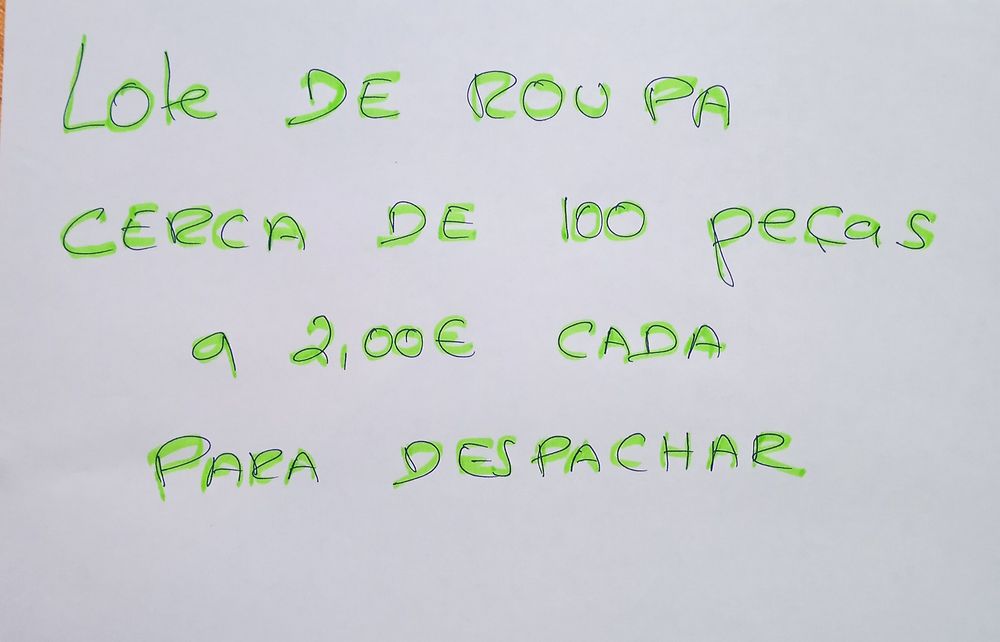 Lote DE ROUPA
CERCA DE 100 peças
a 2,00€ CADA
PARA DESPACHAR